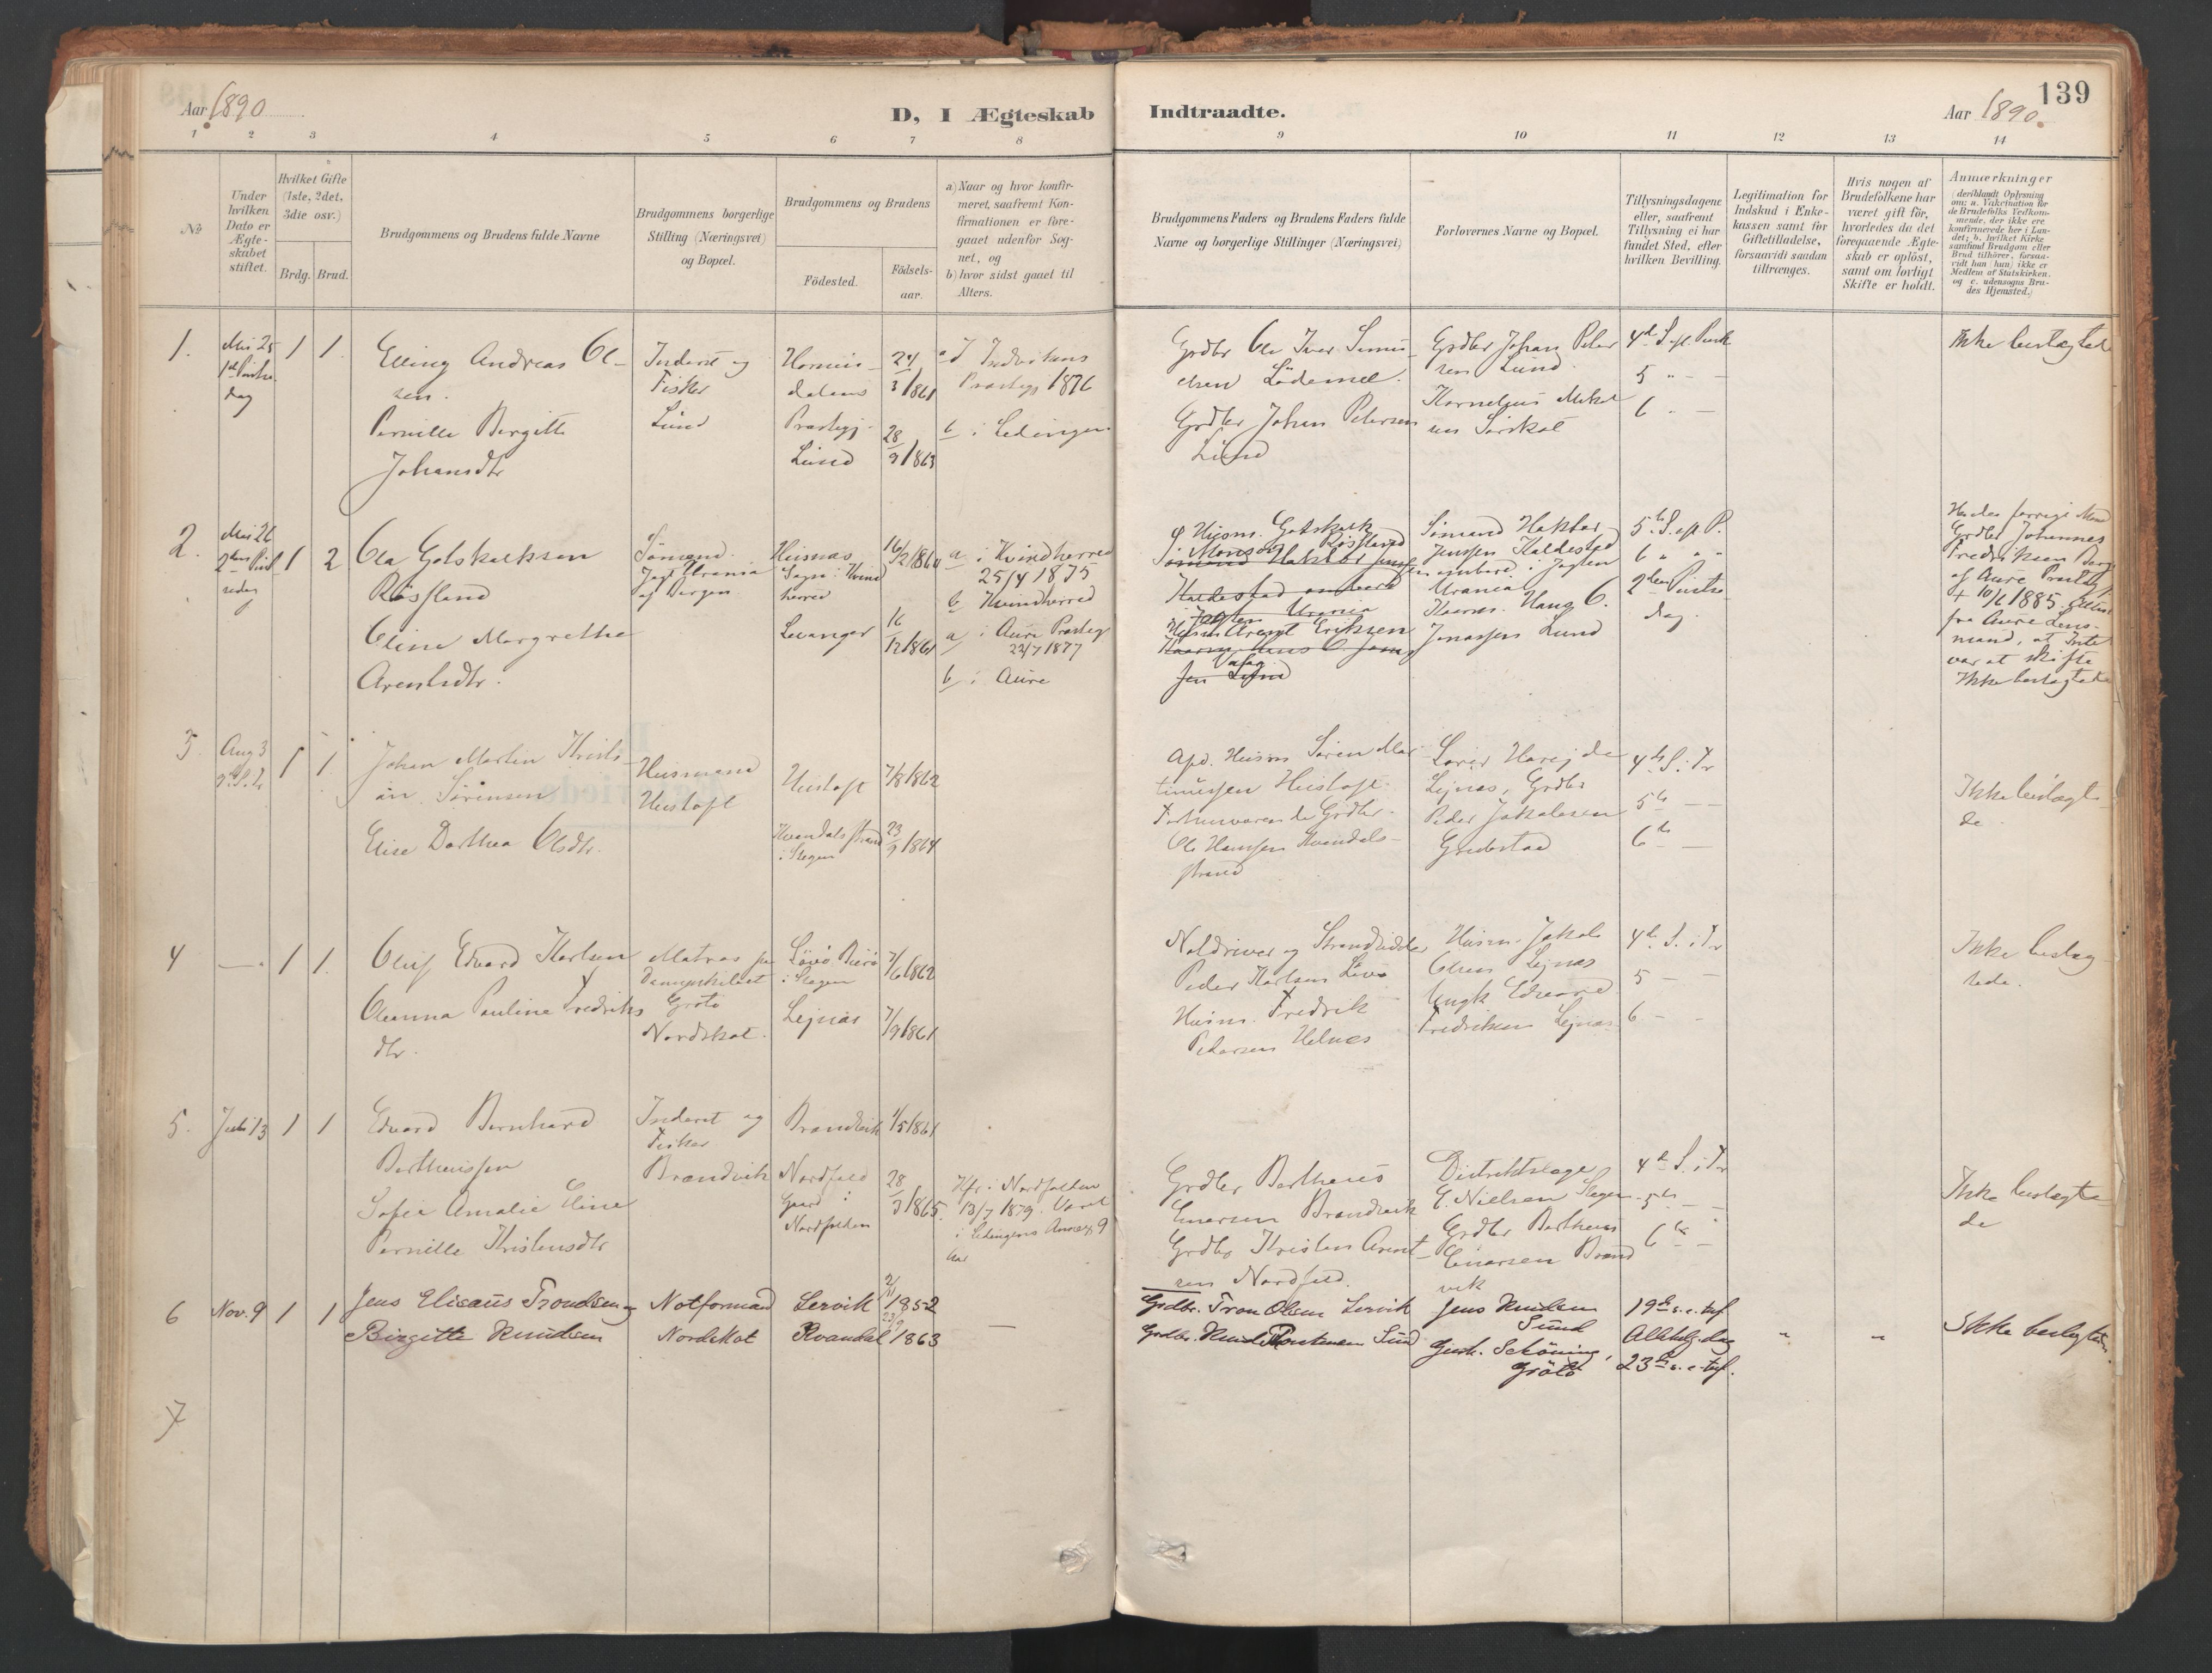 139
Aar 1890
D, I Ægteskab
Indtraadte.
Aar 1890.
1 2 3 4 5 6 7 8 9 10 11 12 13 14
No
Under
hvilken
Dato er
Ægte-
skabet
stiftet.
Hvilket Gifte
(1ste, 2det,
3die osv.)
Brdg. Brud.
Brudgommens og Brudens fulde Navne
Brudgommens borgerlige
Stilling (Næringsvei)
og Bopæl.
Brudgommens og Brudens
Födested.
Födsels-
aar.
a) Naar og hvor konfir-
meret, saafremt Kon-
firmationen er fore-
gaaet udenfor Sog-
net, og
b) hvor sidst gaaet til
Alters.
Brudgommens Faders og Brudens Faders fulde
Navne og borgerlige Stillinger (Næringsvei)
Forlovernes Navne og Bopæl.
Tillysningsdagene
eller, saafremt
Tillysning ei har
fundet Sted, efter
hvilken Bevilling.
Legitimation for
Indskud i Enke-
kassen samt for
Giftetilladelse,
forsaavidt saadan
tiltrænges.
Hvis nogen af
Brudefolkene har
været gift för,
hvorledes da det
foregaaende Ægte-
skab er oplöst,
samt om lovligt
Skifte er holdt.
Anmærkninger
(deriblandt Oplysning
om: a. Vakcination for
de Brudefolks Vedkom-
mende, der ikke ere
konfirmerede her i Lan-
det; b. hvilket Kirke
samfund Brudgom eller
Brud tilhörer, forsaa-
vidt han (hun) ikke er
Medlem af Statskirken,
og c. udensogns Bru-
des Hjemsted.)
1.
Mai 25
dag
1 1.
Elling Andreas Ol-
sen.
Pernille Bergitte
Johansdtr
Inderst og
Fisker
Lund
dalens
Præstegj.
Lund
24/3 1861
28/9 1863
Præstegj 1876
b i Lødingen
Grdbr Ole Iver Simu-
elsen Lödemel.
Grdbr Johan Petersen
Lund
Grdbr Johan Peter
sen Lund
Kornelius Mikal
sen Sörskot
5 " —
6 " —
Ikke beslægtede
2.
Mai 26
1 2
Ola Gotskalksen
Røsland
Oline Margrethe
Arentsdtr.
Sömand
Jagt Urania
af Bergen
Husnæs
Sogn i Kvind
herred
Levanger
16/2 1864
16/12 1861
a i Kvindherred
25/4 1875
b Kvindherred
a i Aure Præstegj
23/7 1877
b i Aure
Husm. Gotskalk
Monsen Røsland
Husm Arent Eriksen
Sömand Haktor
Jensen Haldestad
ombord i Jagten
Urania
Kaarm. Hans O.
Jonassen Lund
6 " " "
dag.
Hendes forrige Mand
Grdbr Johannes
Fredriksen
af Aure Præstegj
† 10/6 1885. Attest
fra Aure Lens-
mand, at Intet
var at skifte
Ikke beslægtede
3.
Aug 3
1 1.
Johan Martin Kristi-
an Sörensen
Elise Dorthea Olsdtr.
Husmand
Husloft
Husloft
Kvandalstrand
i Stegen
7/8 1862
23/9 1864
Apd. Husm Sören Mar
tinussen Husloft
Forhenværende Grdbr.
Ole Hansen Kvandal-
strand
Lejnæs, Grdbr
Peder Jakobsen
4de S. i Tr
5te — —
6te —
Ikke beslægte-
de
4
—.
1 1.
Oluf Edvard Karlsen
Oleanna Pauline Fredriks
dtr.
Matros paa
Dampskibet
Grötö
Nordskot.
i Stegen
Lejnæs
7/6 1862
7/9 1861
Peder Karlsen Lövö
Husm. Fredrik
Petersen Helnæs
Husm. Jakob
Olsen Lejnæs
Ungk Edvard
Fredriksen Lejnæs
4de S. i Tr
5 — —
6 — -
Ikke beslæg-
tede.
5.
Juli 13
1 1
Edvard Bernhard
Bertheussen
Sofie Amalie Eline
Pernille Kristensdtr
Inderst og
Fisker
Brandvik
Brandvik
Nordfeld
Gaard i
Nordfolden
1/5 1861
28/9 1865.
Kfr. i Nordfolden
13/7 1879. Været
i Lødingens Annex 9
Aar
Grdbr Bertheus
Einarsen Brandvik
Grdbr Kristen Arent-
sen Nordfeld.
Distriktslæge
E. Nielsen Stegen
Grdbr Bertheus
Einarsen Brand
vik
4de S. i Tr
5te — —
6te —
Ikke beslægte-
de
6
Nov. 9
1 1
Jens Elisæus Trondsen og
Birgitte Knudsen
Notformand
Nordskot
Lervik
Kvandal
2/11 1852
23/9 1863
—
Grdbr. Tron Olsen Lervik
Grdbr. Knud Sund
Jens Knudsen
Sund
Gerh. Schöning,
Grötö
19de s. e. tref.
Allehelg. dag
23de s. e. tref.
" "
Ikke beslegtede.
7